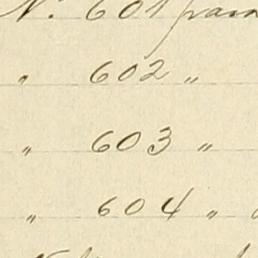 N. 601
" 602 "
" 603 "
" 604 "